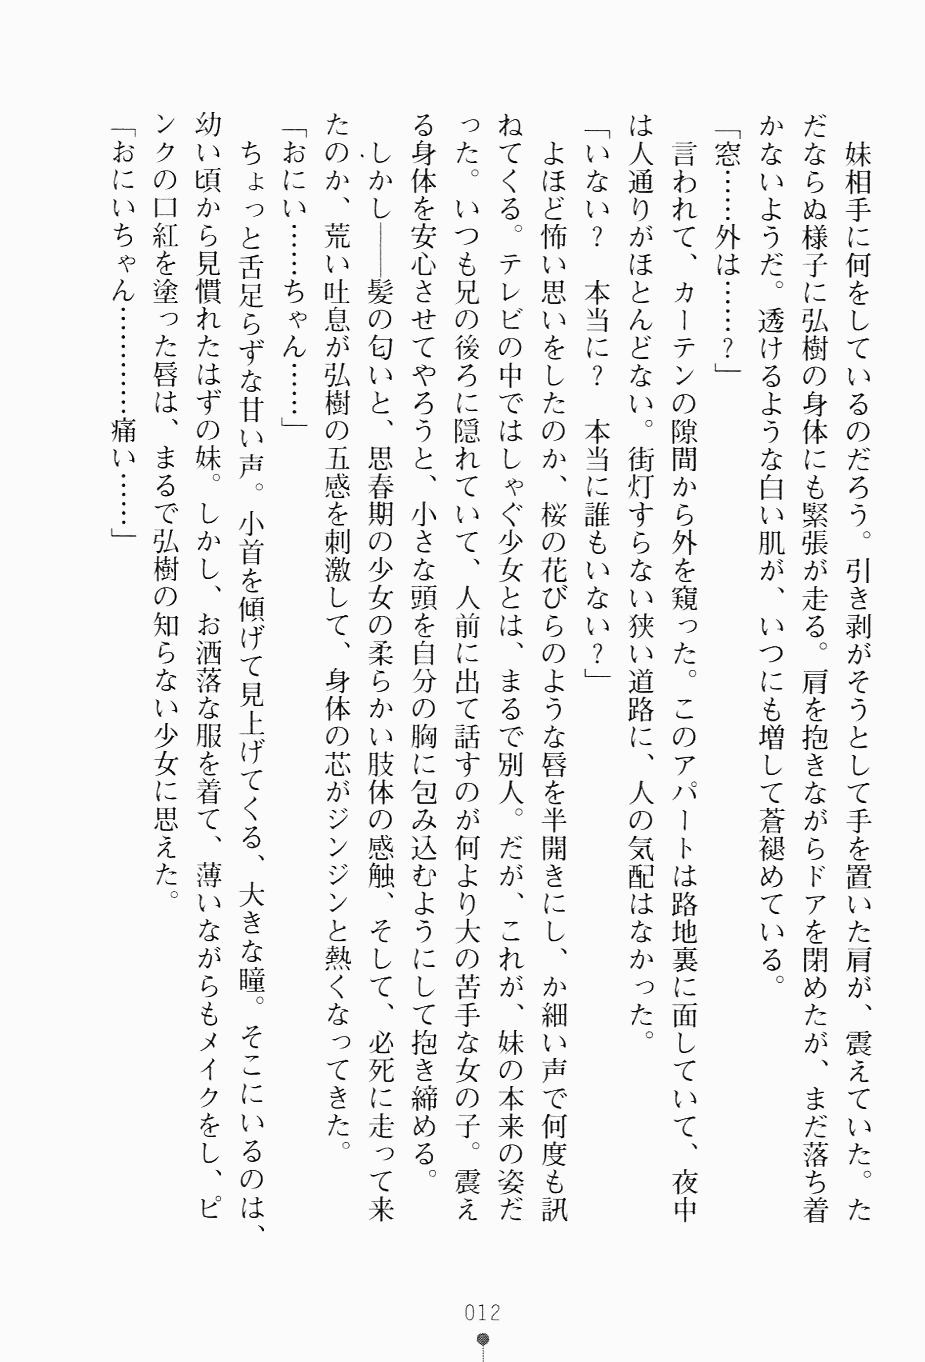 妹相手に何をしているのだろう。引き剥がそうとして手を置いた肩が、震えていた。た
だならぬ様子に弘樹の身体にも緊張が走る。肩を抱きながらドアを閉めたが、まだ落ち着
かないようだ。透けるような白い肌が、いつにも増して蒼褪めている。
「窓……外は……？」
言われて、カーテンの隙間から外を窺った。このアパートは路地裏に面していて、夜中
は人通りがほとんどない。街灯すらない狭い道路に、人の気配はなかった。
「いない？　本当に？　本当に誰もいない？」
よほど怖い思いをしたのか、桜の花びらのような唇を半開きにし、か細い声で何度も訊
ねてくる。テレビの中ではしゃぐ少女とは、まるで別人。だが、これが、妹の本来の姿だ
った。いつも兄の後ろに隠れていて、人前に出て話すのが何より大の苦手な女の子。震え
る身体を安心させてやろうと、小さな頭を自分の胸に包み込むようにして抱き締める。
しかし――髪の匂いと、思春期の少女の柔らかい肢体の感触、そして、必死に走って来
たのか、荒い吐息が弘樹の五感を刺激して、身体の芯がジンジンと熱くなってきた。
「おにい……ちゃん……」
ちょっと舌足らずな甘い声。小首を傾げて見上げてくる、大きな瞳。そこにいるのは、
幼い頃から見慣れたはずの妹。しかし、お洒落な服を着て、薄いながらもメイクをし、ピ
ンクの口紅を塗った唇は、まるで弘樹の知らない少女に思えた。
「おにいちゃん…………痛い……」
012